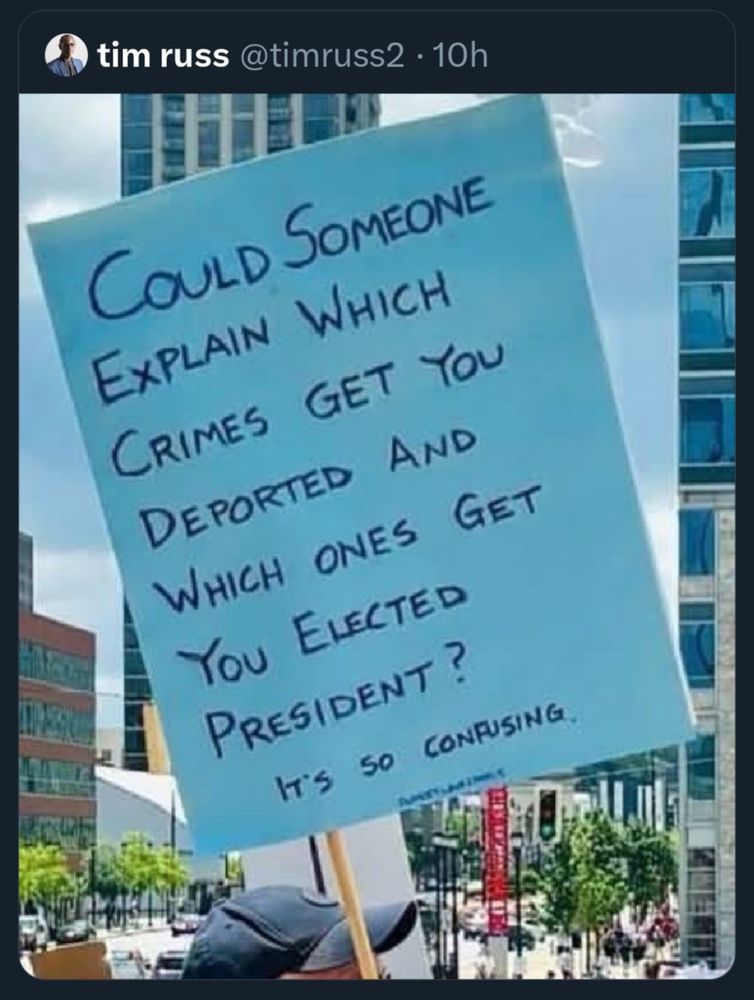 tim russ @timruss2 · 10h
COULD SOMEONE
EXPLAIN WHICH
CRIMES GET YOU
DEPORTED AND
WHICH ONES GET
YOU ELECTED
PRESIDENT?
IT'S SO CONFUSING.